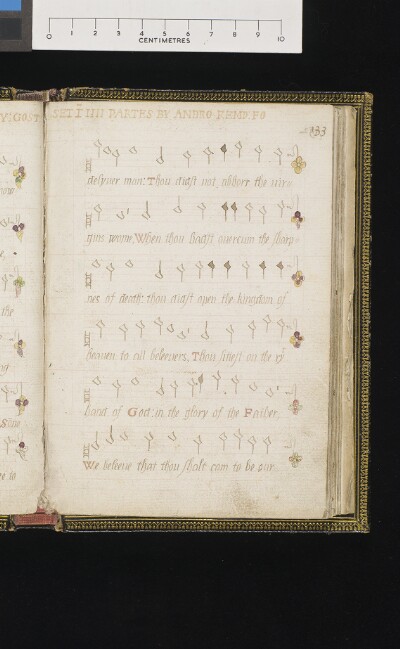 0 1 2 3 4 5 6 7 8 9 10
CENTIMETRES
SET I IIII PARTES BY ANDRO KEMP. FO
133
delyuer man: Thou didst not abhorr the uir=
gins wome, When thou hadst ouercum the sharp=
nes of death: thou didst open the kingdom of
heauen to all beleeuers, Thou sittest on the ry
hand of God: in the glory of the Father,
We beleeue that thou shalt com to be our